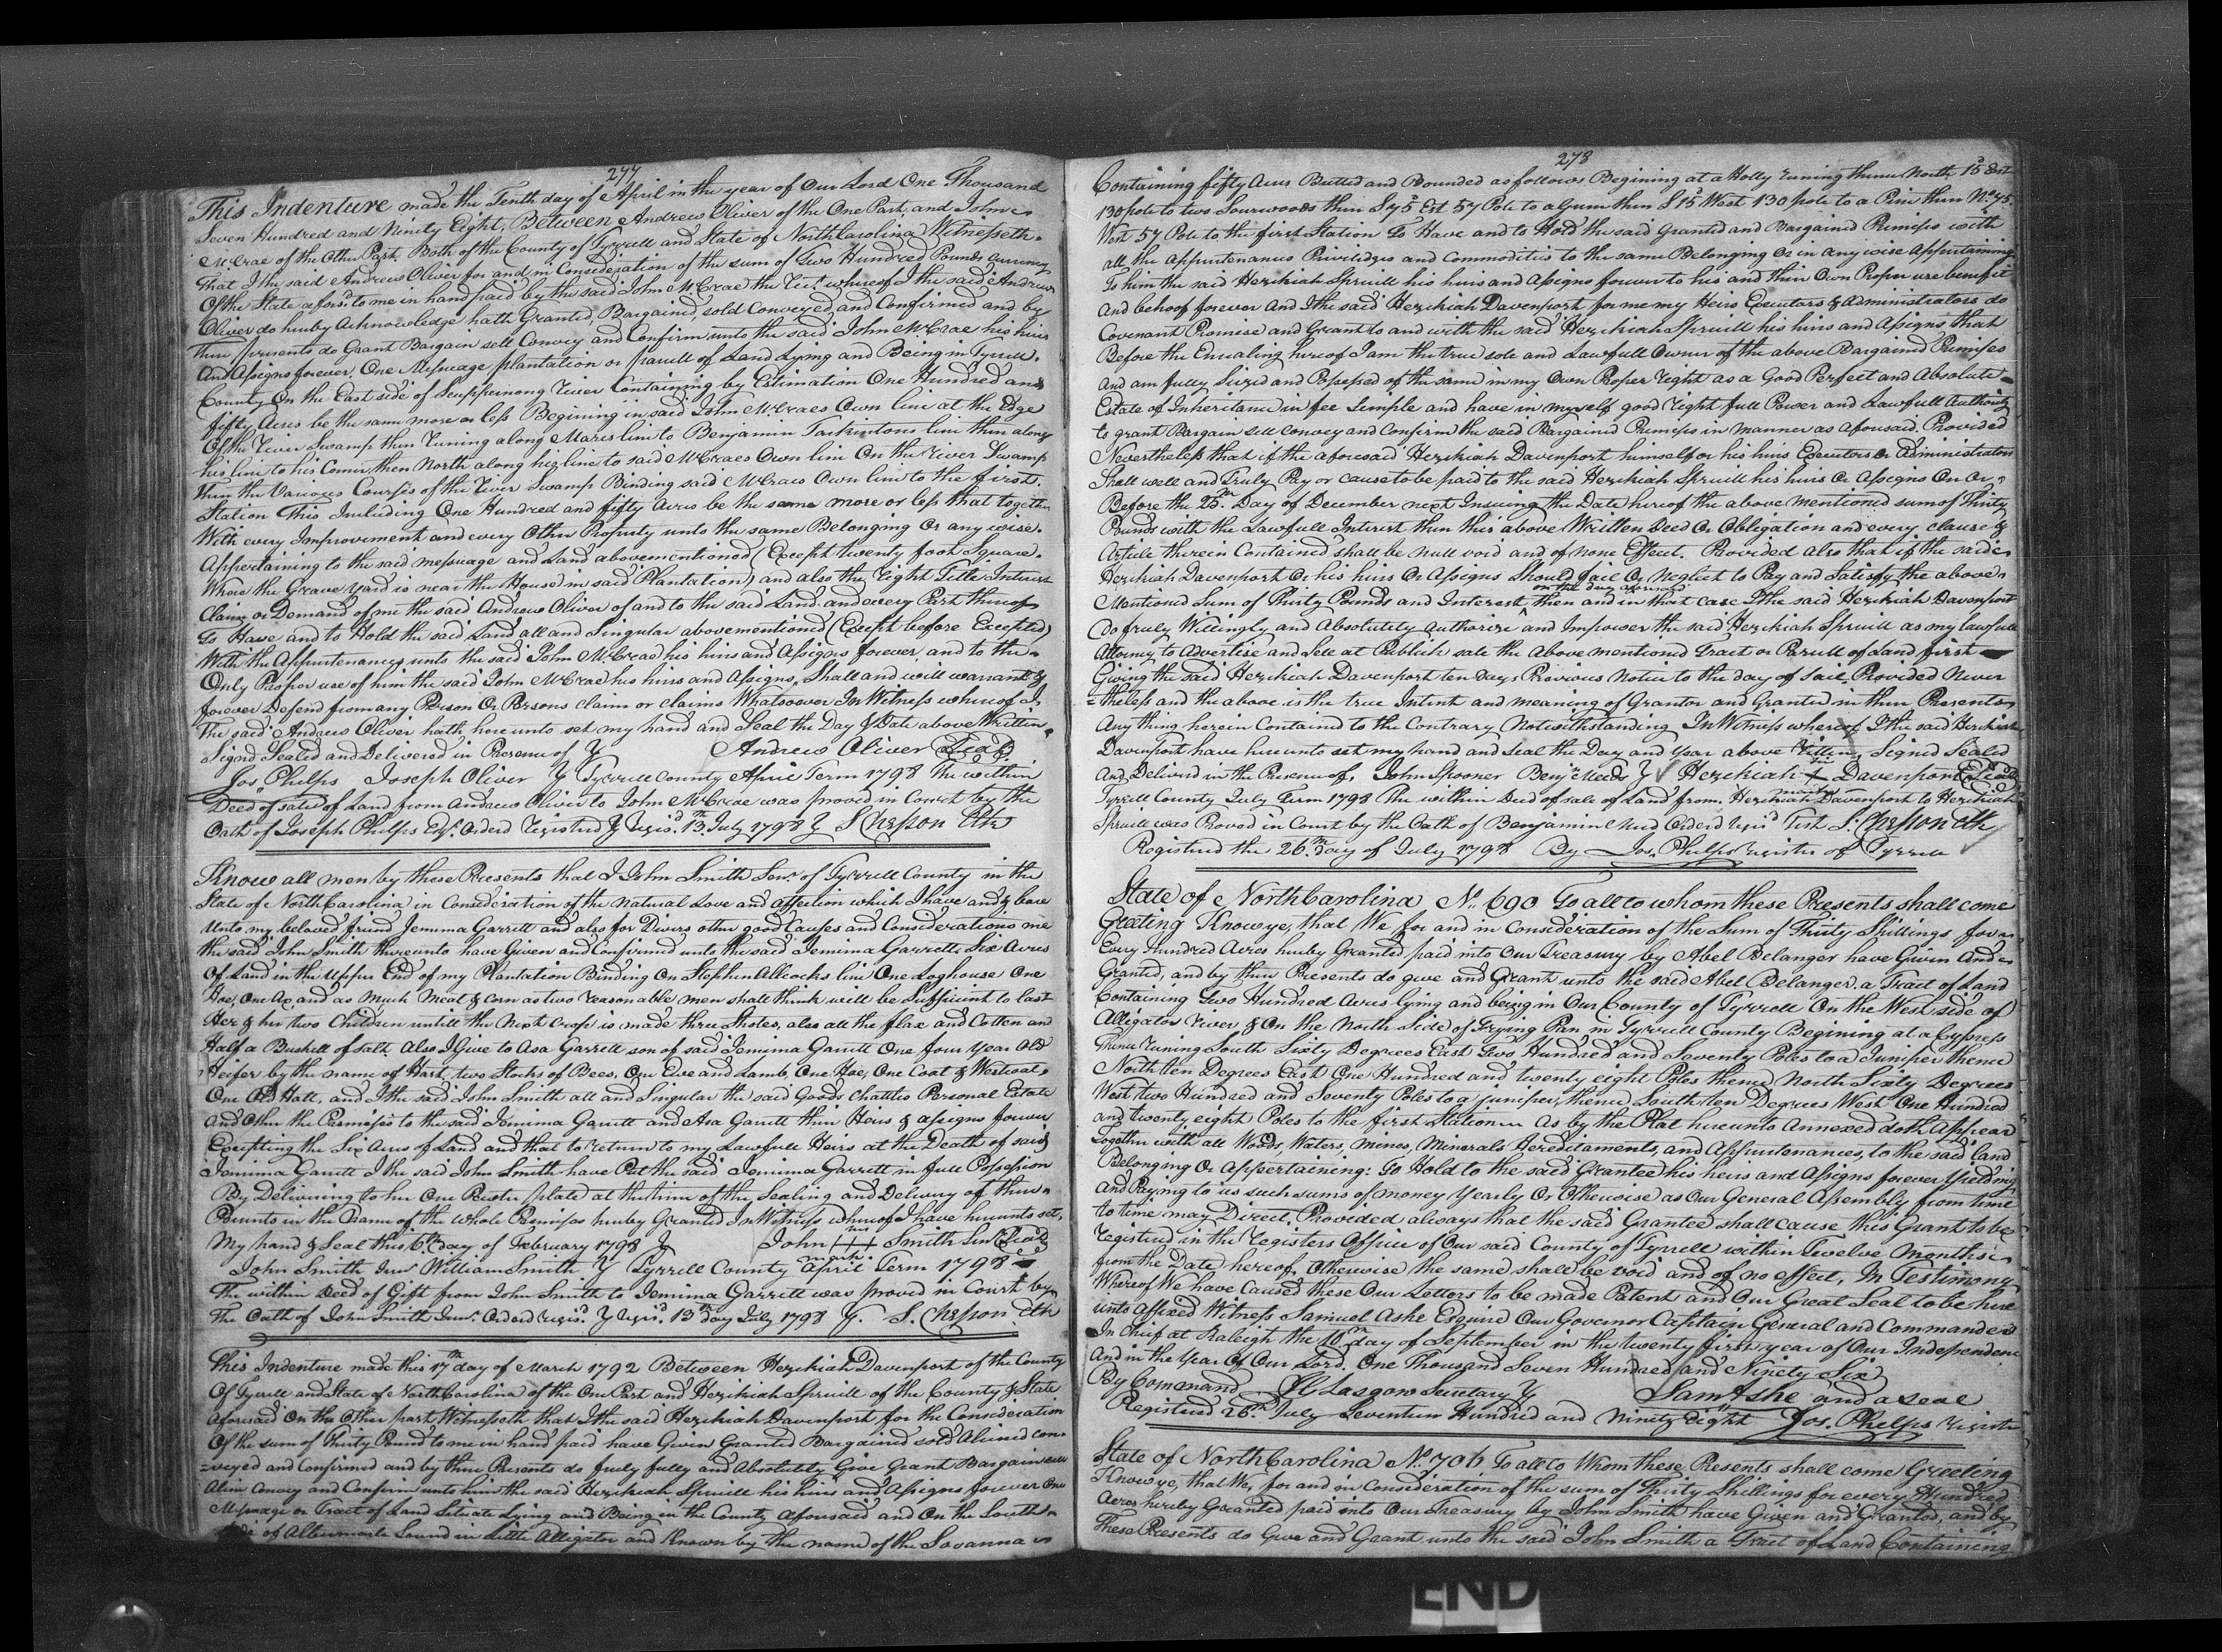 277
This Indenture made the Tenth day of April in the year of Our Lord One Thousand
Seven Hundred and Ninety Eight, Between Andrew Oliver of the One Part, and John
McCrae of the Other Part, Both of the County of Tyrrell and State of North Carolina Witnesseth
That I the said Andrew Oliver for and in Consideration of the sum of Two Hundred Pounds currency
Of the State afors.d to me in hand paid by the said John McCrae the Rect. whereof I the said Andrew
Oliver do hereby Acknowledge hath Granted, Bargaind, sold Conveyed, and Confirmed and by
These presents do Grant Bargain sell Convey and Confirm unto the said John McCrae his heirs
And Assigns forever, One Messuage plantation or parcell of Land Lying and Being in Tyrrell
County On the East side of Scuppernong River Containing by Estimation One Hundred and
fifty Acres be the same more or less Begining in said John McCraes Own line at the Edge
Of the River Swamp then Runing along Mares line to Benjamin Tarkintons line then along
his line to his Corner then North along his line to said McCraes Own line On the River Swamp
then the Various Courses of the River Swamp Binding said McCraes Own line to the first
Station This Including One Hundred and fifty Acres be the same more or less that together
With every Improvement and every Other Property unto the same Belonging Or any wise
Appertaining to the said messuage and Land abovementioned (Except twenty foot Square
Where the Grave yard is near the House in said Plantation) and also the Right Title Interest
Claim or Demand of me the said Andrew Oliver of and to the said Land and every Part thereof
To Have and to Hold the said Land all and Singular abovementioned (Except before Excepted)
With the Appurtenances unto the said John McCrae his heirs and Assigns forever and to the
Only Proper use of him the said John McCrae his heirs and Assigns, Shall and will warrant &
forever Defend from any Person Or Persons claim or claims Whatsoever In Witness whereof I
The said Andrew Oliver hath hereunto set my hand and Seal the Day & Date above Written
Signd Sealed and Delivered in Presence of } Andrew Oliver Seal
Jos. Phelps Joseph Oliver } Tyrrell County April Term 1798 The within
Deed of sale of Land from Andrew Oliver to John McCrae was proved in Court by the
Oath of Joseph Phelps Esqr. Orderd Registred } Regis.d 13.th July 1798 } S Chesson Clk
Know all men by these Presents that I John Smith Senr. of Tyrrell County in the
State of North Carolina in Consideration of the Natural Love and affection which I have and bare
Unto my beloved friend Jemima Garrett and also for Divers other good Causes and Considerations me
the said John Smith thereunto have Given and Confirmed unto the said Jemima Garrett, Six Acres
Of Land in the Upper End of my Plantation Binding On Stephen Allcocks line One Loghouse One
Hoe, One Ax and as Much Meat & Corn as two reasonable men shall think will be Sufficient to last
Her & her two Children untill the Next Crop is made three Shotes, also all the flax and Cotten and
Half a Bushell of salt. Also I Give to Asa Garrett son of said Jemima Garrett One four Year Old
Heifer by the name of Hart, two Stocks of Bees, One Ewe and Lamb, One Hoe, One Coat & Westcoat
One Old Hatt, and I the said John Smith all and Singular the said Goods Chattles Personal Estate
And Other the Permises to the said Jemima Garrett and Asa Garrett thier Heirs & assigns forever
Excepting the Six Acres of Land and that to return to my Lawfull Heirs at the Death of said
Jemima Garrett I the said John Smith have Put the said Jemima Garrett in full Possession
By Delivering to her One Pewter plate at the time of the Sealing and Delivery of these
Presents in the Name of the whole Premises hereby Granted In Witness whereof I have hereunto set
My hand & Seal this 6.th day of February 1798 } John his mark Smith Senr Seal
John Smith Junr. William Smith } Tyrrell County April Term 1798
The within Deed of Gift from John Smith to Jemima Garrett was proved in Court by
The Oath of John Smith Junr. Orderd Regis.d } Regis.d 13th day July 1798 }. S. Chesson Clk
This Indenture made this 17th day of March 1792 Between Hezekiah Davenport of the County
Of Tyrrell and State of North Carolina of the One Part and Hezikiah Spruill of the County & State
aforesaid On the Other part Witnesseth that I the said Hezekiah Davenport for the Consideration
Of the sum of Thirty Pound to me in hand paid have Given Granted Bargained sold Aliened con
=veyed and Confirmed and by these Presents do freely fully and Absolutely Give Grant Bargain sell
Alien Convey and Confirm unto him the said Hezekiah Spruill his heirs and Assigns forever One
Messuage or Tract of Land Situate Lying and Being in the County aforesaid and On the South
side of Albermarle Sound in Little Alligator and Known by the name of the Savanna
278
Containing fifty Acres Butted and Bounded as follows Begining at a Holly runing thence North 15 East
130 pole to two Sourwoods then S 75 Est 57 Pole to a Gum then S 15 West 130 pole to a Pine then No. 75
West 57 Pole to the first Station To Have and to Hold the said Granted and Bargained Premises with
all the Appurtenances Priviledges and Commodities to the same Belonging Or in any wise Appertaining
To him the said Hezekiah Spruill his heirs and Assigns forever to his and their Own Proper use benefit
And behoof forever And I the said Hezekiah Davenport for me my Heirs Executors & Administrators do
Covenant Promise and Grant to and with the said Hezekiah Spruill his heirs and Assigns that
Before the Ensealing hereof I am the true sole and Lawfull Owner of the above Bargained Premises
and am fully Seized and Possessed of the same in my Own Proper Right as a Good Perfect and Absolute
Estate of Inheritance in fee Simple and have in myself good right full Power and Lawfull Authority
to grant Bargain sell convey and Confirm the said Bargained Premises in manner as aforesaid. Provided
Nevertheless that if the aforesaid Hezekiah Davenport himself or his heirs Executors or Administrators
Shall well and Truly Pay or cause to be paid to the said Hezekiah Spruill his heirs Or Assigns On Or
Before the 25th. Day of December next Insuing the Date hereof the above Mentioned sum of Thirty
Pounds with the Lawfull Interest then this above Written Deed Or Obligation and every clause &
Article therein Contained shall be Null void and of none Effect. Provided also that if the said
Hezekiah Davenport Or his heirs Or Assigns Should fail Or Neglect to Pay and Satisfy the above
on the day aforesaid
Mentioned Sum of Thirty Pounds and Interest ^ then and in that case I the said Hezekiah Davenport
Do freely Willingly and Absolutely Authorize and Impower the said Hezekiah Spruill as my lawfull
Attorney to Advertise and Sell at Publick sale the Above mentioned Tract or Parcell of Land first
Giving the said Hezekiah Davenport ten days Previous Notice to the day of Sail. Provided Never
=theless and the above is the true Intent and meaning of Grantor and Granted in these Presents
Any thing herein Contained to the Contrary Notwithstanding In Witness whereof I the said Hezekiah
Davenport have hereunto set my hand and Seal the Day and Year above Written, Signed Sealed
And Deliverd in the Presence of, John Spooner Benjn. Meeds } Hezekiah his mark Davenport Seal
Tyrrell County July Term 1798 The within Deed of sale of Land from Hezekiah Davenport to Hezekiah
Spruill was Proved in Court by the Oath of Benjamin Meed Orderd Regis.d Test S. Chesson Clk
Registred the 26.th day of July 1798 By Jos. Phelps Register of Tyrrell
State of North Carolina No. 690 To all to whom these Presents shall come
Greeting Know ye, that We for and in Consideration of the Sum of Thirty Shillings for
Every Hundred Acres hereby Granted, paid into Our Treasury by Abel Belanger have Given and
Granted, and by these Presents do give and Grant unto the said Abel Belanger a Tract of Land
Containing Two Hundred Acres lying and being in Our County of Tyrrell On the West side of
Alligator River, & On the North Side of Frying Pan in Tyrrell County Begining at a Cypress
Thence runing South Sixty Degrees East Two Hundred and Seventy Poles to a Juniper thence
North ten Degrees East One Hundred and twenty eight Poles thence North Sixty Degrees
West two Hundred and Seventy Poles to a juniper, thence South ten Degrees West One Hundred
and twenty eight Poles to the first Station as by the Plat hereunto Annexed doth Appear
Together with all Woods, Waters, Mines, Minerals Hereditaments, and Appurtenances, to the said Land
Belonging Or Appertaining: To Hold to the said Grantee his heirs and Assigns forever Yielding
and Paying to us such sums of money Yearly Or Otherwise as Our General Assembly from time
to time may Direct, Provided always that the said Grantee shall cause this Grant to be
Registred in the Registers Office of Our said County of Tyrrell within Twelve Months
from the Date hereof, Otherwise the same shall be void and of no effect, In Testimony
Whereof We have Caused these Our Letters to be made Patent and Our Great Seal to be here
unto Affixed Witness Samuel Ashe Esquire Our Governor Captain General and Commander
In Chief at Raleigh the 10th day of September in the twenty first year of Our Independence
And in the Year Of Our Lord, One Thousand Seven Hundred and Ninety Six
By Command JGlasgow Secretary } Sam Ashe and a seal
Registred 26th. July Seventeen Hundred and Ninety Eight Jos. Phelps Register
State of North Carolina No. 706 To all to Whom these Presents shall come Greeting
Know ye, that We, for and in Consideration of the sum of Thirty Shillings for every Hundred
Acres hereby Granted paid into Our Treasury by John Smith have Given and Granted, and by
These Presents do Give and Grant unto the said John Smith a Tract of Land Containing
END